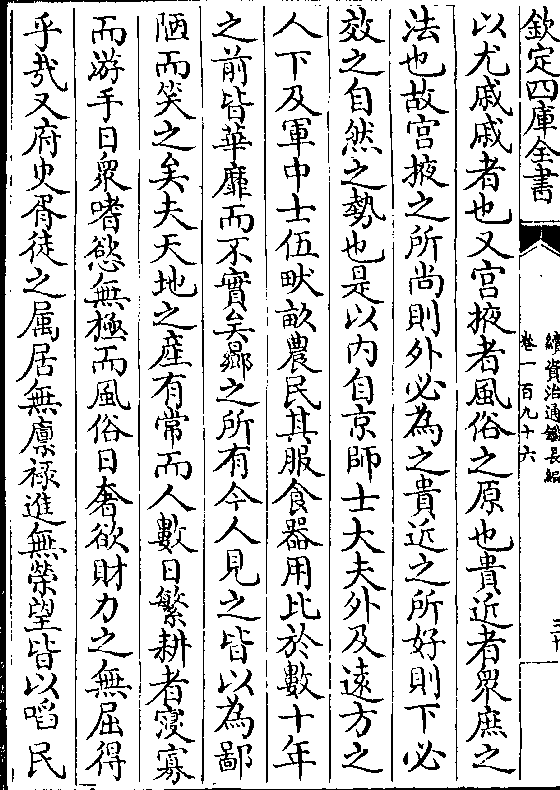 欽定四庫全書
續資治通鑑長編
卷一百九十六
以尤戚戚者也又宮掖者風俗之原也貴近者衆庶之
法也故宮掖之所尚則外必為之貴近之所好則下必
效之自然之勢也是以内自京師士大夫外及逺方之
人下及軍中士伍畎畝農民其服食器用比於數十年
之前皆華靡而不實矣曏之所有今人見之皆以為鄙
陋而笑之矣夫天地之産有常而人數日繁耕者寖寡
而游手日衆嗜慾無極而風俗日奢欲財力之無屈得
乎哉又府史胥徒之属居無廪禄進無榮望皆以啗民